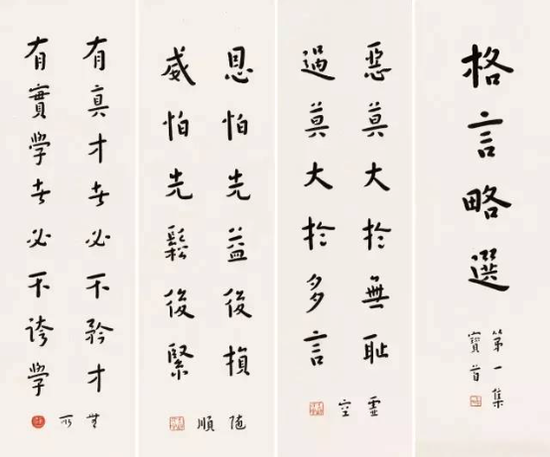 格言略選
第一集
寶首
惡莫大於無恥
過莫大於多言
靈
空
恩怕先益後損
威怕先鬆後緊
隨
順
有真才者必不矜才
有實學者必不誇學
無
所